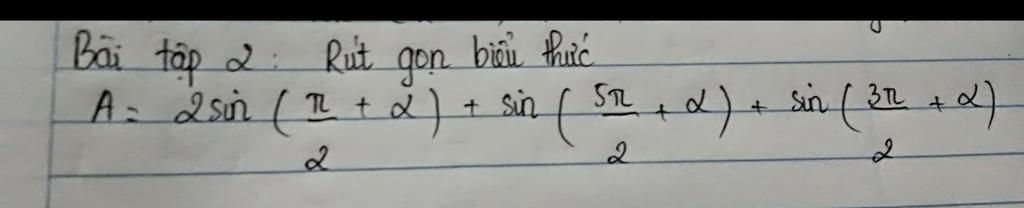 Bài tập 2: Rút gọn biểu thức
A = 2sin (π/2 + α) + sin (5π/2 + α) + sin (3π/2 + α)